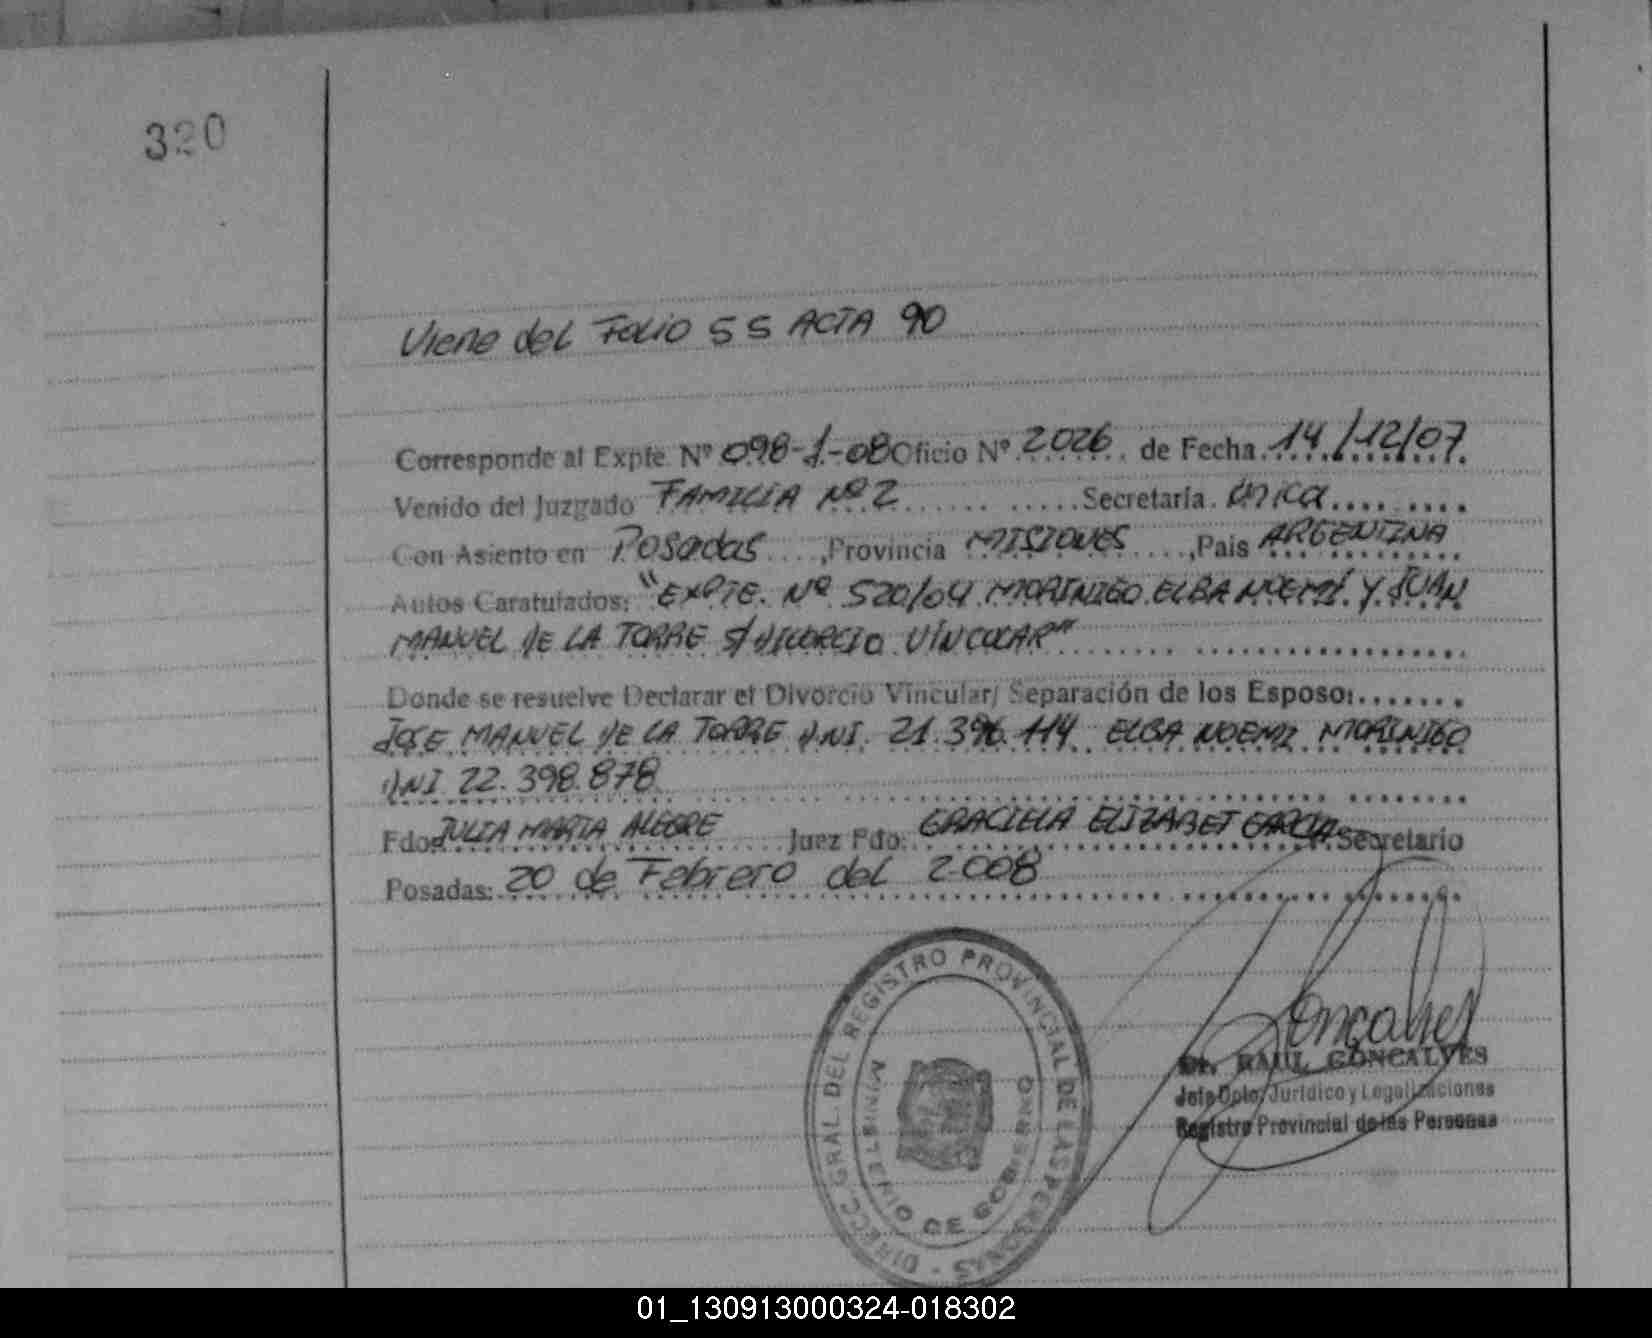 320
Viene del Folio 55 ACTA 90
Corresponde al Expte. Nº 098-1-08 Oficio Nº 2026 de Fecha 14/12/07
Venido del Juzgado FAMILIA Nº 2 Secretaría única
Con Asiento en Posadas, Provincia MISIONES, País ARGENTINA
Autos Caratulados: "EXPTE. Nº 520/04 MORINIGO ELBA NOEMÍ Y JUAN
MANUEL DE LA TORRE S/DIVORCIO VINCULAR"
Donde se resuelve Declarar el Divorcio Vincular/ Separación de los Esposo:
JOSE MANUEL DE LA TORRE DNI. 21.396.114 ELBA NOEMI MORINIGO
DNI 22.398.878
Fdo: JULIA MARTA ALEGRE Juez Fdo: GRACIELA ELIZABET GARCIA Secretario
Posadas: 20 de Febrero del 2.008
DIRECC. GRAL. DEL REGISTRO PROVINCIAL DE LAS PERSONAS
MINISTERIO DE GOBIERNO
Goncalves
Dr. RAUL GONCALVES
Jefe Dpto. Jurídico y Legalizaciones
Registro Provincial de las Personas
01_130913000324-018302